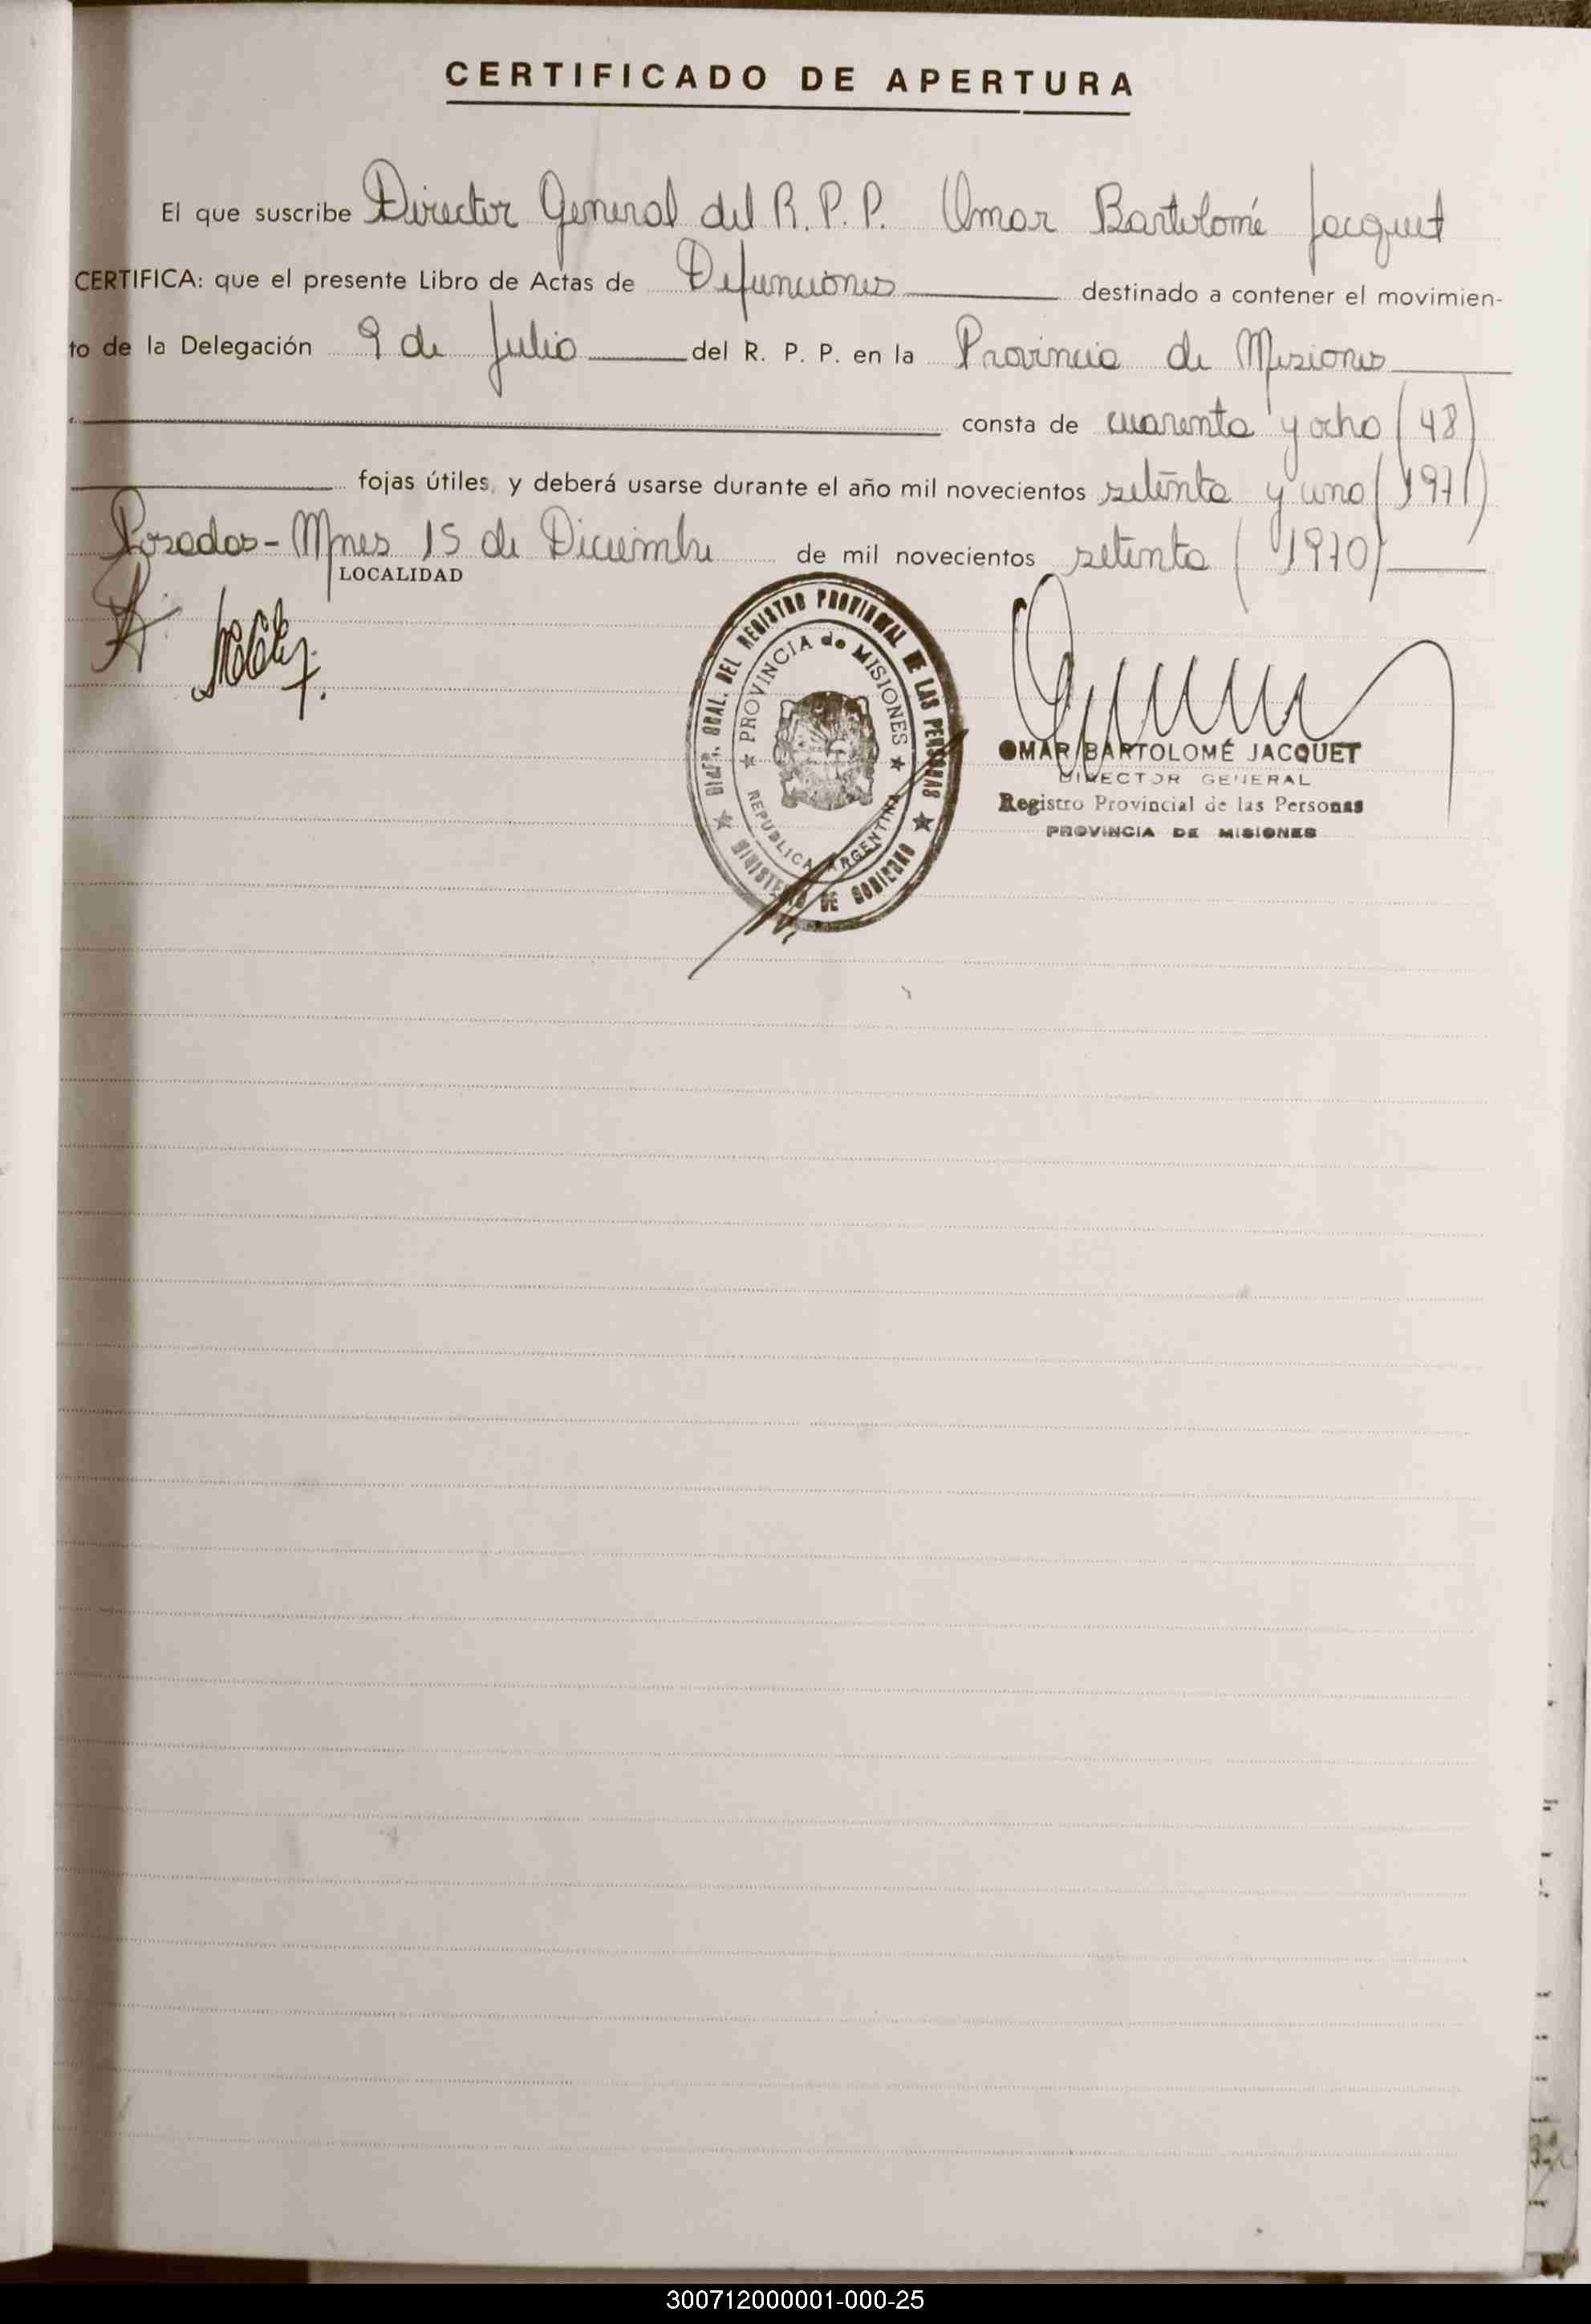 CERTIFICADO DE APERTURA
El que suscribe Director General del R. P. P. Omar Bartolomé Jacquet
CERTIFICA: que el presente Libro de Actas de Defunciones destinado a contener el movimien-
to de la Delegación 9 de Julio del R. P. P. en la Provincia de Misiones
consta de cuarenta y ocho (48)
fojas útiles, y deberá usarse durante el año mil novecientos setenta y uno (1971)
Posadas - Mnes 15 de Diciembre de mil novecientos setenta (1970)
LOCALIDAD
DIREC. GRAL. DEL REGISTRO PROVINCIAL DE LAS PERSONAS
PROVINCIA de MISIONES
REPUBLICA ARGENTINA
MINISTERIO DE GOBIERNO
OMAR BARTOLOMÉ JACQUET
DIRECTOR GENERAL
Registro Provincial de las Personas
PROVINCIA DE MISIONES
300712000001-000-25